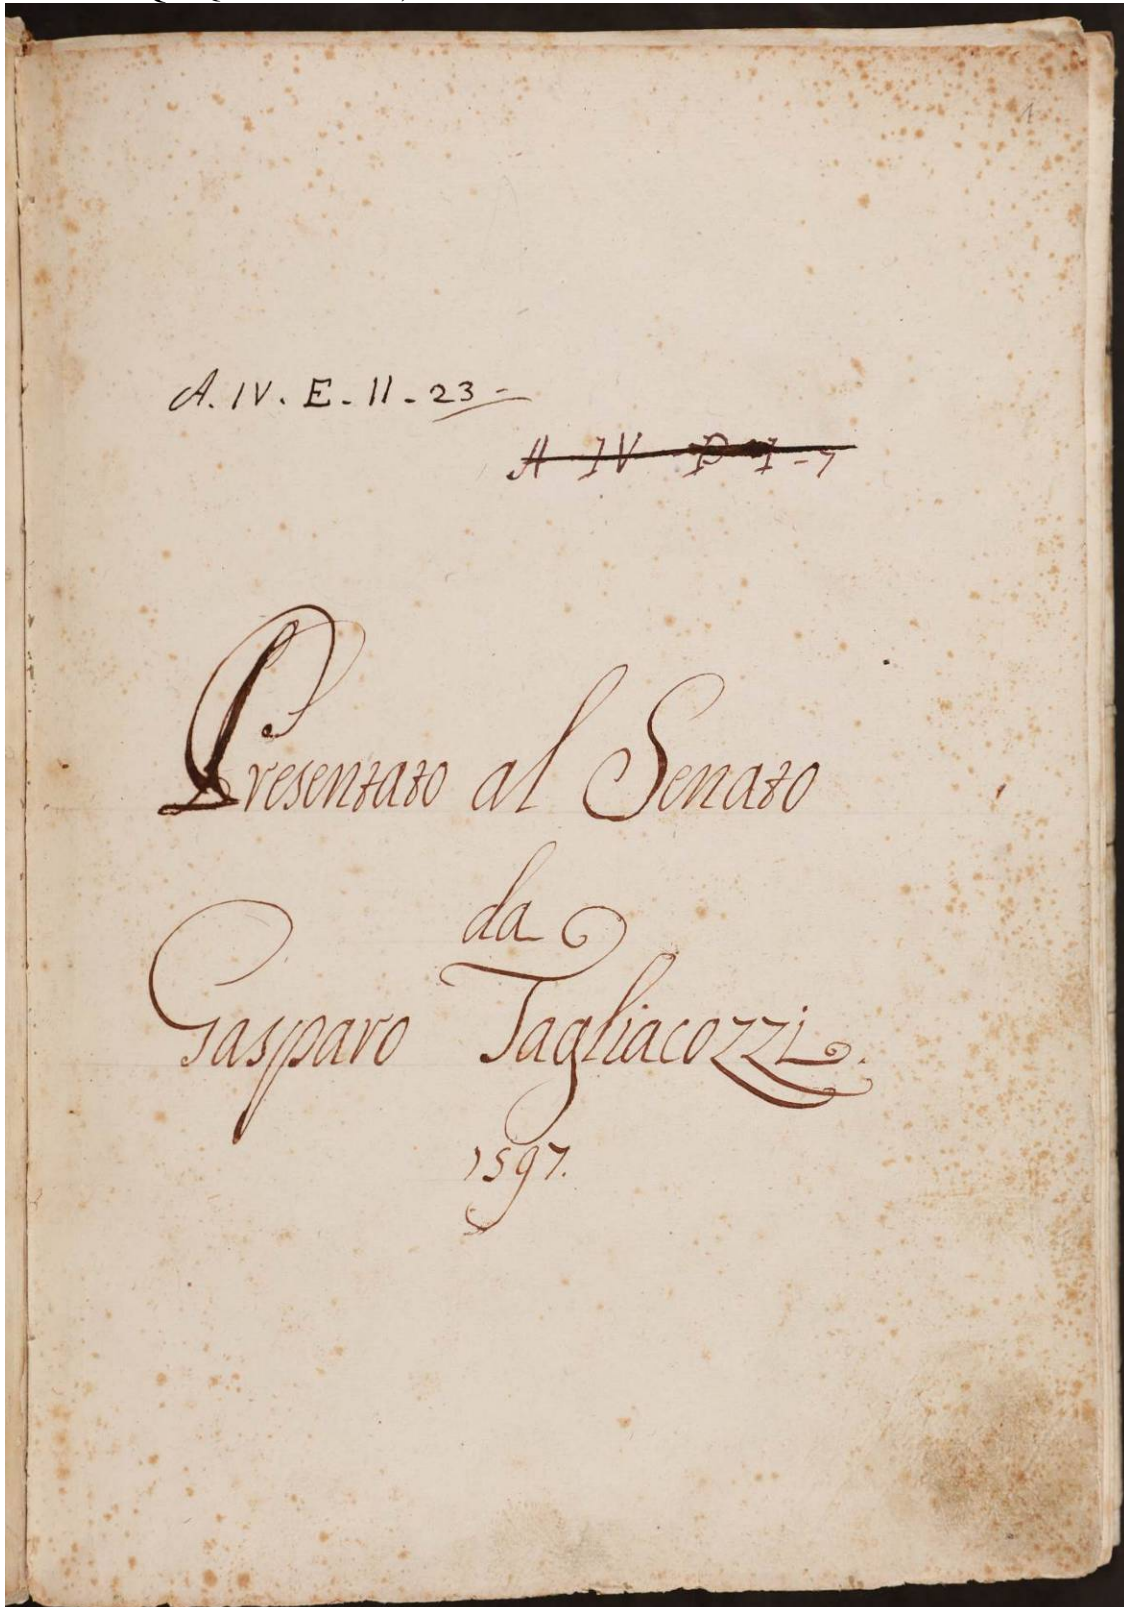 1
A. IV. E. II. 23-
A IV P I-7
Presentato al Senato
da
Gasparo Tagliacozzi.
1597.